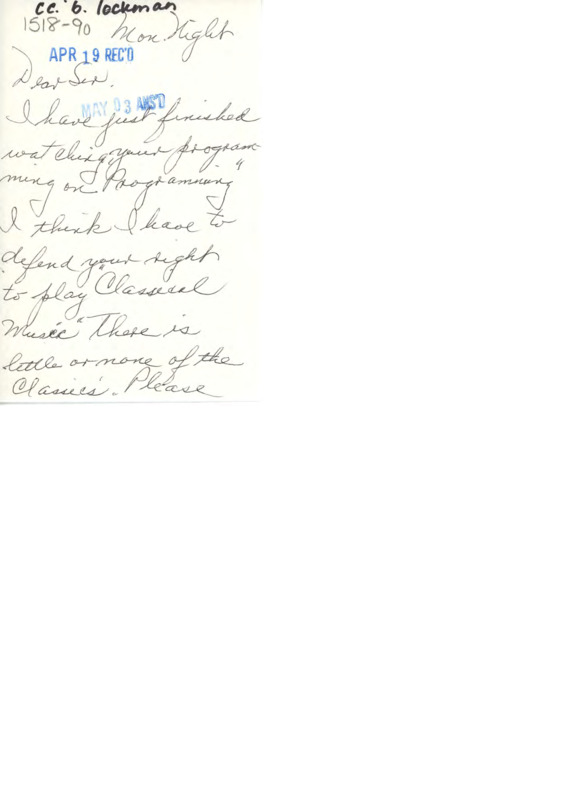 cc. b. lockman
1518-90 Mon. Night
APR 19 REC'D
Dear Sir.
MAY 03 ANS'D
I have just finished
watching "your program-
ming on Programming"
I think I have to
defend your right
to play "Classical
Music" There is
little or none of the
Classics. Please